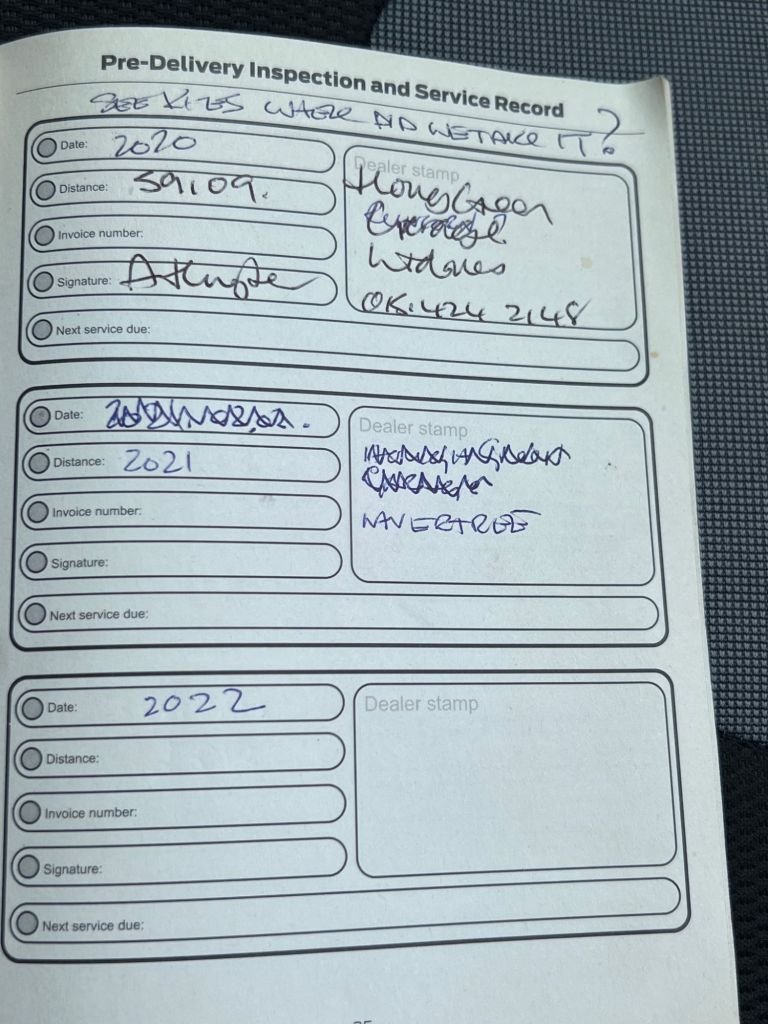 Pre-Delivery Inspection and Service Record
WHERE DID WE TAKE IT?
Date: 2020
Distance: 59109.
Invoice number:
Signature:
Next service due:
Dealer stamp
Green
2148
Date:
Distance: 2021
Invoice number:
Signature:
Next service due:
Dealer stamp
WAVERTREE
Date: 2022
Distance:
Invoice number:
Signature:
Next service due:
Dealer stamp